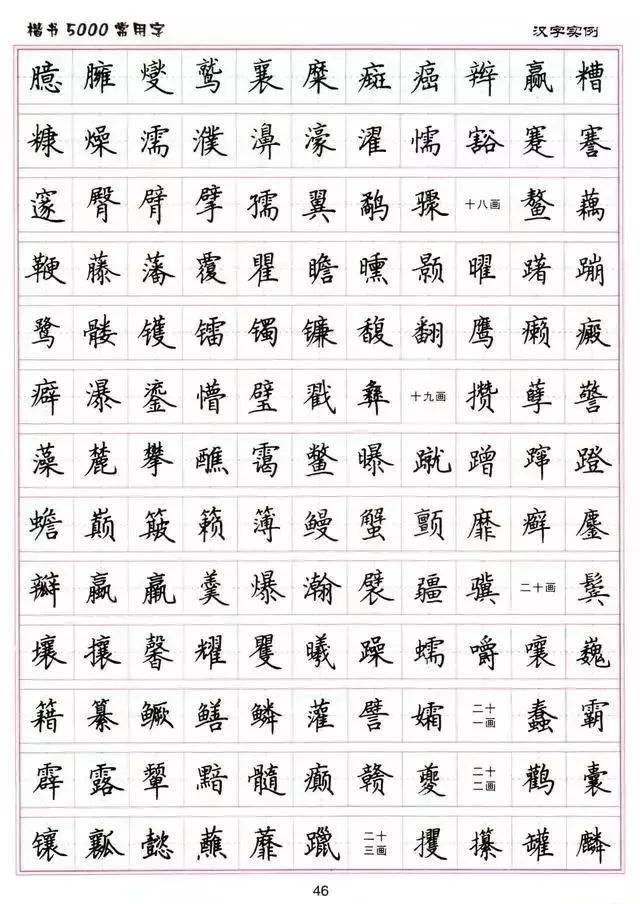 楷书5000常用字 汉字实例
臆 臃 燮 鹫 襄 糜 癍 癌 辫 赢 糟
糠 燥 濡 濮 濞 濠 濯 懦 豁 蹇 謇
邃 臀 臂 擘 孺 翼 鹬 骤 十八画 鳌 藕
鞭 藤 藩 覆 瞿 瞻 曛 颢 曜 躇 蹦
鹭 髅 镬 镭 镯 镰 馥 翻 鹰 癞 癜
癖 瀑 鎏 懵 璧 戳 彝 十九画 攒 孽 警
藻 麓 攀 醮 霭 鳖 曝 蹴 蹭 蹿 蹬
蟾 巅 簸 籁 簿 鳗 蟹 颤 靡 癣 鏖
瓣 嬴 羸 羹 爆 瀚 襞 疆 骥 二十画 鬓
壤 攘 馨 耀 矍 曦 躁 蠕 嚼 嚷 巍
籍 纂 鳜 鳝 鳞 灌 譬 孀 二十一画 蠢 霸
霹 露 颦 黯 髓 癫 赣 夔 二十二画 鹳 囊
镶 瓤 懿 蘸 蘼 躐 二十三画 攫 攥 罐 麟
46